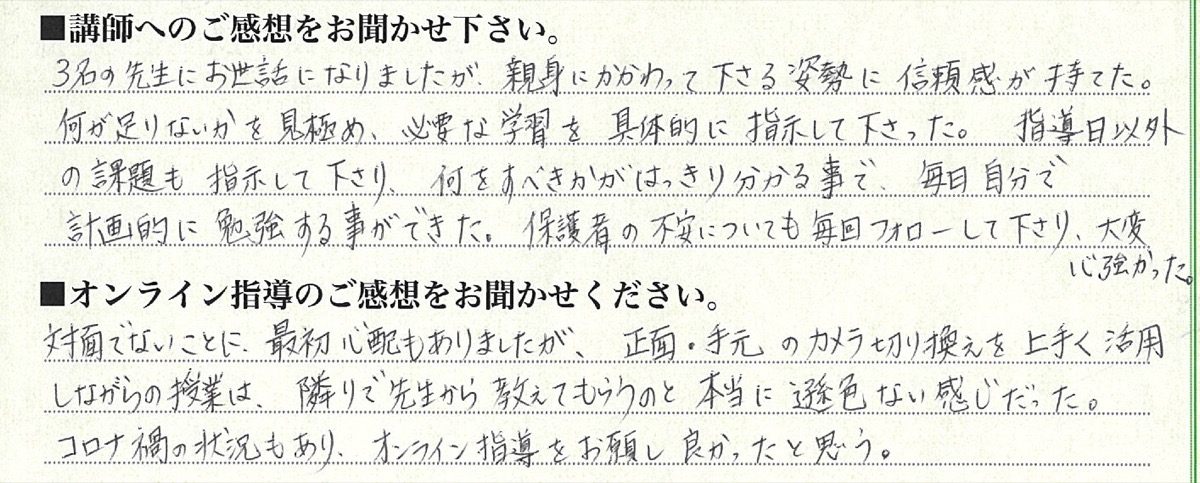 ■講師へのご感想をお聞かせ下さい。
3名の先生にお世話になりましたが、親身にかかわって下さる姿勢に信頼感が持てた。
何が足りないかを見極め、必要な学習を具体的に指示して下さった。 指導日以外
の課題も指示して下さり、何をすべきかがはっきり分かる事で、毎日自分で
計画的に勉強する事ができた。保護者の不安についても毎回フォローして下さり、大変
心強かった。
■オンライン指導のご感想をお聞かせください。
対面でないことに、最初心配もありましたが、正面・手元のカメラ切り換えを上手く活用
しながらの授業は、隣りで先生から教えてもらうのと本当に遜色ない感じだった。
コロナ禍の状況もあり、オンライン指導をお願し良かったと思う。